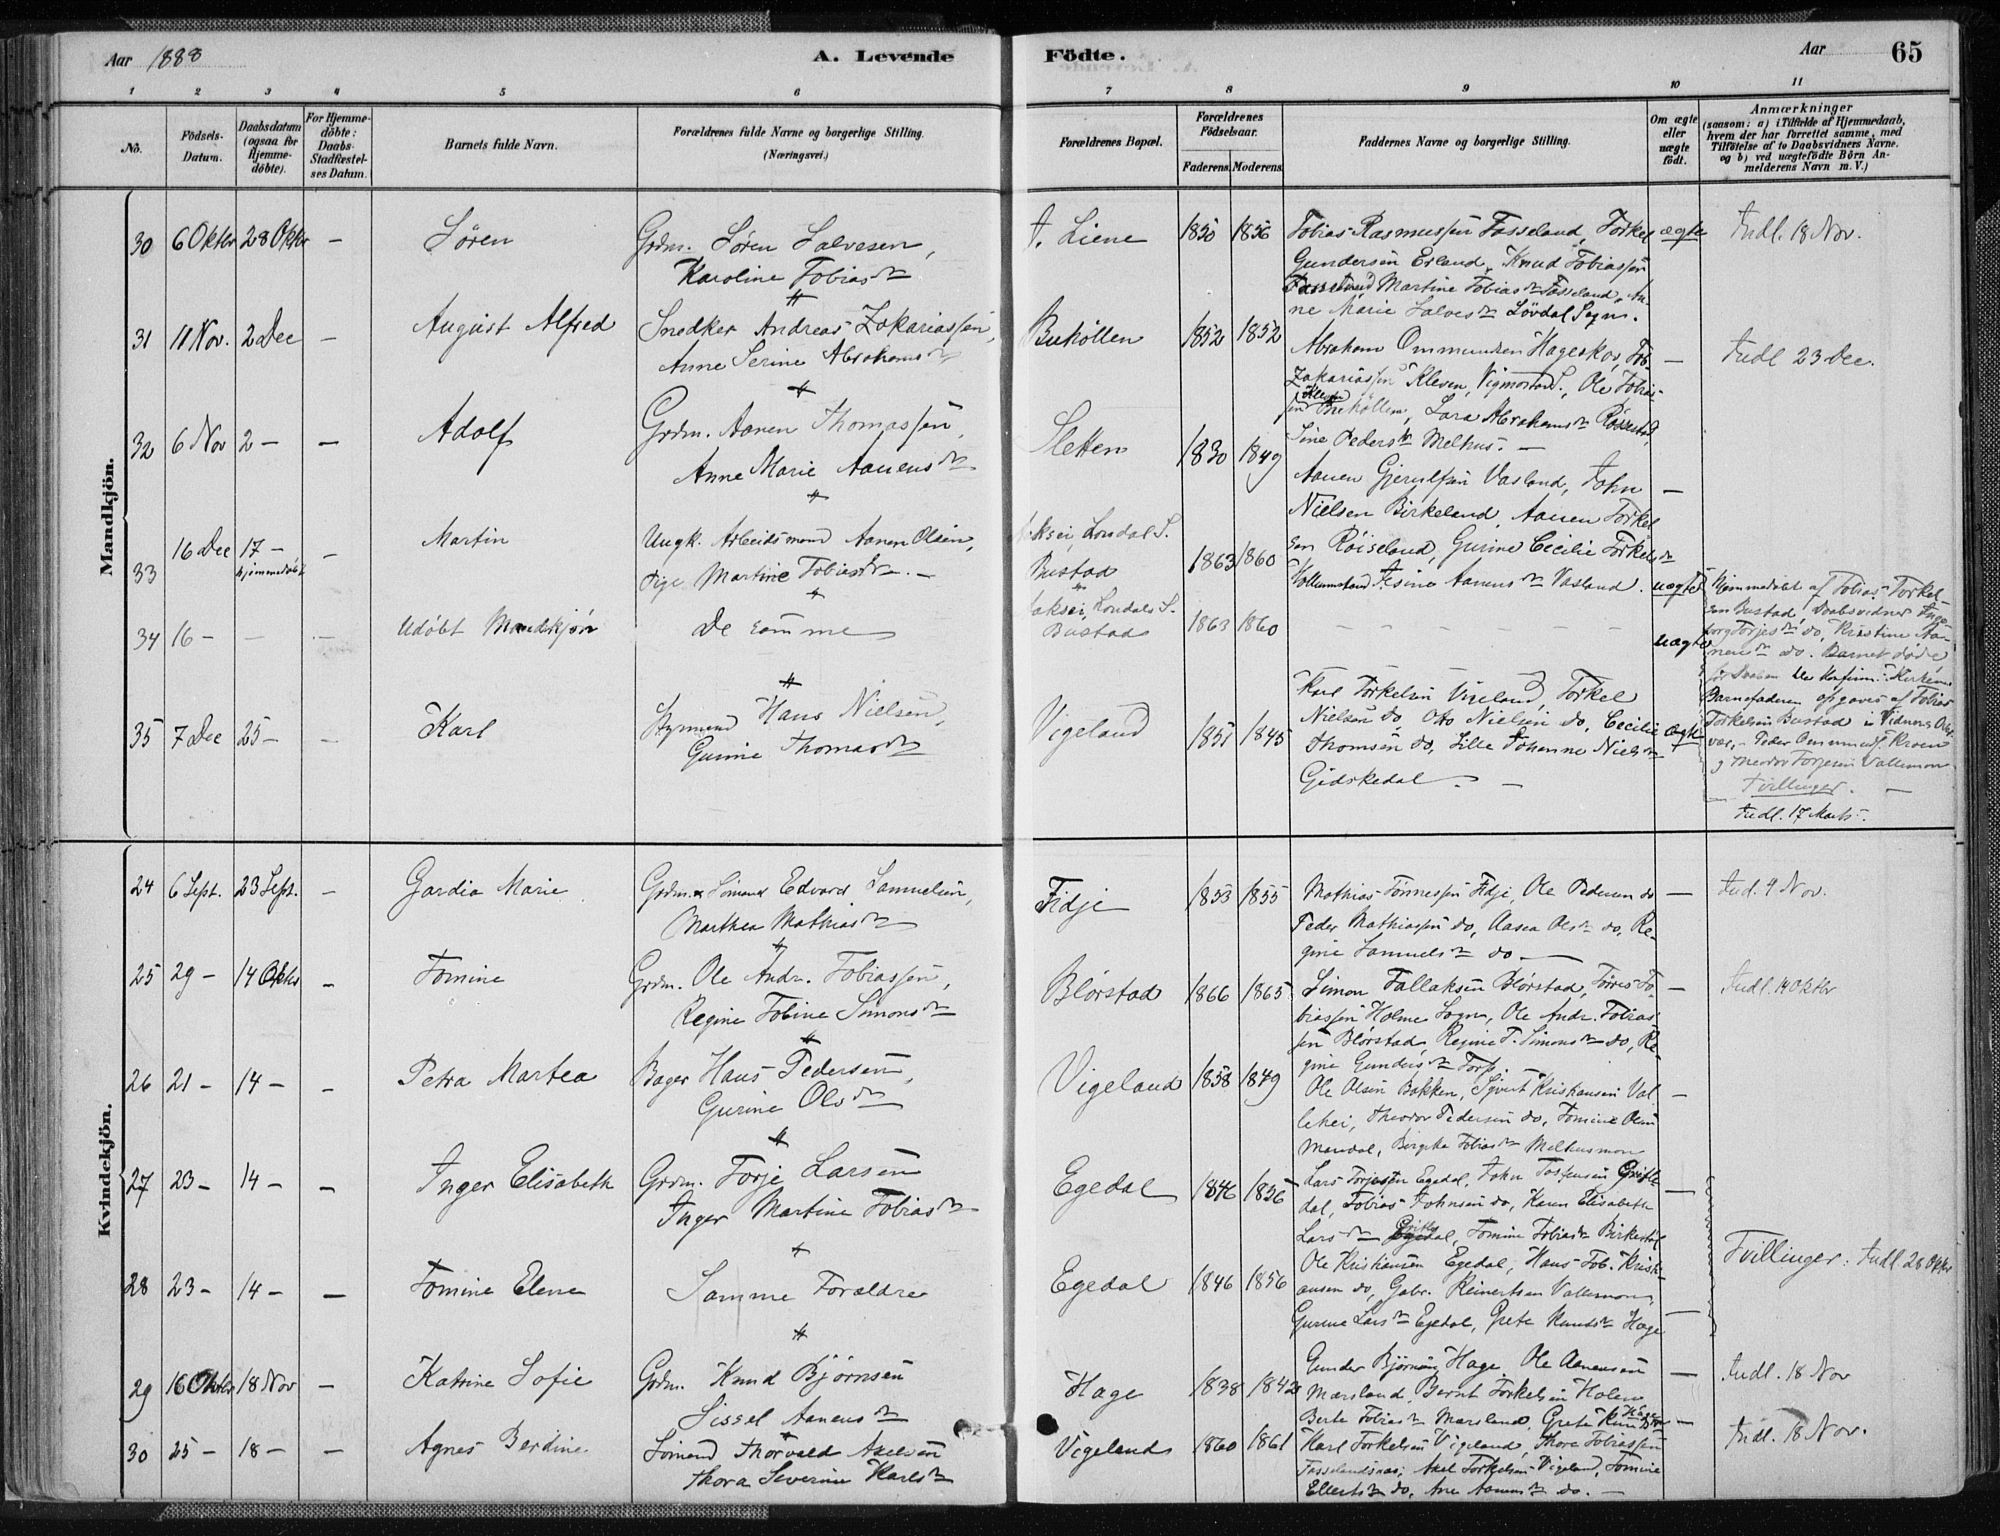 Aar 1888
A. Levende
Födte.
Aar
65
1 2 3 4 5 6 7 8 9 10 11
No.
Födsels-Datum.
Daabsdatum (ogsaa for Hjemme-döbte).
For Hjemme-döbte: Daabs-Stadfæstel-ses Datum.
Barnets fulde Navn.
Forældrenes fulde Navne og borgerlige Stilling. (Næringsvei.)
Forældrenes Bopæl.
Forældrenes Födselsaar.
Faderens. Moderens.
Faddernes Navne og borgerlige Stilling.
Om ægte eller uægte födt.
Anmærkninger
(saasom: a) i Tilfælde af Hjemmedaab,
hvem der har forrettet samme, med
Tilföielse af to Daabsvidners Navne.
og b) ved uægtefödte Börn An-
melderens Navn m. V.)
Mandkjön.
30 6 Oktbr 28 Oktbr – Sören Grdm. Sören Salvesen, Karoline Tobiasdr
Liene 1850 1856
Tobias Rasmussen Fasseland, Torkel
Gundersen Erland, Knud Tobiassen
Fasseland Martine Tobiasdr Fasseland, An-
ne Marie Salvesdr Lövdal Sogn.
ægte Indl. 18 Nov.
31 11 Nov. 2 Dec – August Alfred Snedker Andreas Zakariassen, Anne Serine Abrahamsdr
1852 1852
Abraham Ommundsen Hageskov, Tob.
Zakariassen Kleven, Vigmostad S., Ole Tobias-
sen, Lara Abrahamsdr
Sine Pedersdr Melhus. –
– Indl 23 Dec.
32 6 Nov 2 – – Adolf Grdm. Aanen Thomassen, Anne Marie Aanensdr
Sletten 1830 1849
Aanen Gjerulfsen Vasland, John
Nielsen Birkeland, Aanen Torkel
sen Röiseland, Gurine Cecilie Torkelsdr
Aanensdr Vasland.
–
33 16 Dec 17 – hjemmedöbt – Martin Ungk. Arbeidsmand Aanen Olsen, Pige Martine Tobiasdr. –
Bustad 1863 1860
uægte
Hjemmedöbt af Tobias Torkel-
sen Bustad, Daabsvidner Inge-
borg Torjesdr do, Kristine Aa-
nensdr do. Barnet döde
för Daaben
Barnefaderen opgaves af Tobias
Torkelsen Bustad
Peder
Tvillinger. –
34 16 – – – Udöbt Mandkjön De samme
Bustad 1863 1860
– – – – –
uægte
35 7 Dec 25 – Karl Styrmand Hans Nielsen, Gurine Thomasdr
Vigeland 1851 1845
Karl Torkelsen Vigeland Torkel
Nielsen do, Otto Nielsen do, Cecilie
Thomsen do, Lille Johanne Nielsdr
Gidskedal. –
ægte
Indl. 17 Marts.
Kvindekjön.
24 6 Sept. 23 Sept. – Gardia Marie Grdm. & Sömand Edvard Samuelsen, Marthea Mathiasdr
Fidje 1853 1855
Mathias Tönnessen Fidje, Ole Pedersen do
Peder Mathiassen do, Aasea Olsdr do, Re-
gine Samuelsdr do –
– Ind. 4 Nov.
25 29 – 14 Oktbr – Tomine Grdm. Ole Andr. Tobiassen, Regine Tobine Simonsdr
Blörstad 1866 1865
Simon Fallaksen Blörstad, Törres To-
biassen Holme Sogn, Ole Andr. Tobias-
sen Blörstad, Regine T. Simonsdr do, Re-
gine Gundersdr Torp
– Indl. 14 Oktbr
26 21 – 14 – – Petra Martea Bager Hans Pedersen, Gurine Olsdr
Vigeland 1858 1849
Ole Olsen Bakken, Sivert Kristiansen Val-
lehei, Theodor Pedersen do, Tomine Olsen
Mandal, Birgitte Tobiasdr Melhusmon
–
27 23 – 14 – – Inger Elisabeth Grdm. Torje Larsen Inger Martine Tobiasdr
Egedal 1846 1856
Lars Torjesen Egedal, John
dal, Tobias Johnsen do, Karen Elisabeth
Larsdr Tomine Tobiasdr
–
28 23 – 14 – – Tomine Elene Samme Forældre
Egedal 1846 1856
Ole Kristiansen Egedal, Hans Tob. Kristi-
ansen do, Gabr. Reinertsen Vallemon,
Gurine Larsdr Egedal, Grete Knudsdr Hage
– Tvillinger: Indl 28 Oktbr
29 16 Oktbr 18 Nov – Katrine Sofie Grdm. Knud Björnsen Sissel Aanensdr
Hage 1838 1842
Gunder Björnsen Hage, Ole Aanensen
Marsland, Bernt Torkelsen Holen
Berte Tobiasdr Marsland, Grete Knudsdr Hage
– Indl. 18 Nov
30 25 – 18 – – Agnes Berdine Sömand Thorvald Axelsen Thora Severine Karlsdr
Vigeland 1860 1861
Karl Torkelsen Vigeland, Thore Tobiassen
Axel Torkelsen Vigeland, Tomine
Ellertsdr do, Ane Aanensdr do. –
– Indl. 18 Nov.